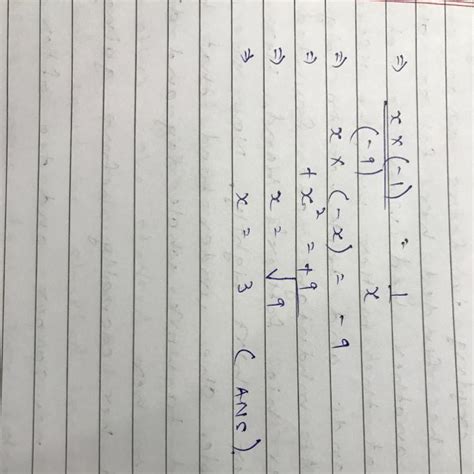 ⇒ x × (-1) / (-9) = 1 / x
⇒ x × (-x) = -9
⇒ +x² = +9
⇒ x = √9
⇒ x = 3 (ANS).